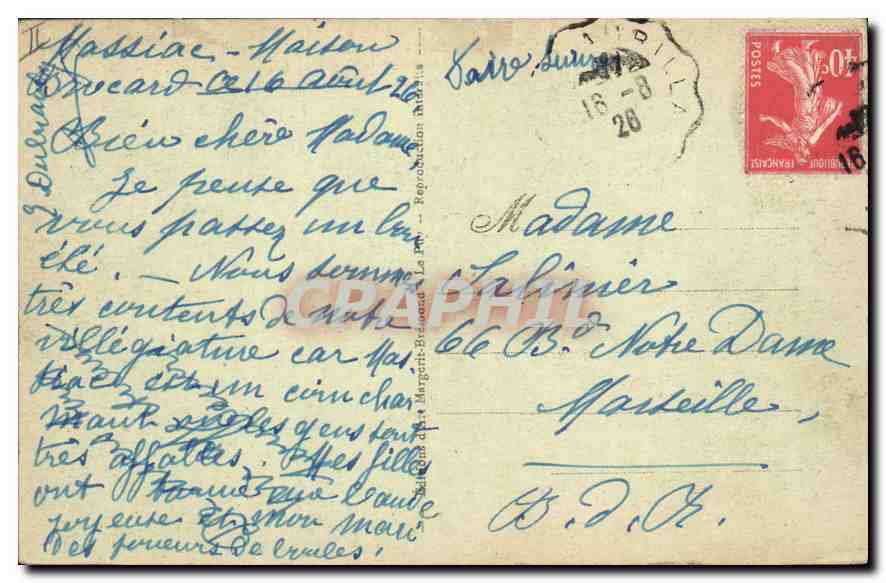 II
Massiac - Maison
Brocard ce 16 août 26
Bien chère Madame,
Je pense que
vous passez un bon
été. - Nous sommes
très contents de notre
villégiature car Mas-
siac est un coin char-
mant où les gens sont
très affables. Mes filles
ont formé une bande
joyeuse et mon mari
des joueurs de boules.
Editions d'Art Margerit-Brémond Le Puy -- Reproduction interdite
AURILLA
16 -8
26
40c
POSTES
REPUBLIQUE FRANÇAISE
16
CPAPHIL
Madame
Salinier
66 Bd Notre Dame
Marseille,
B. d. R.